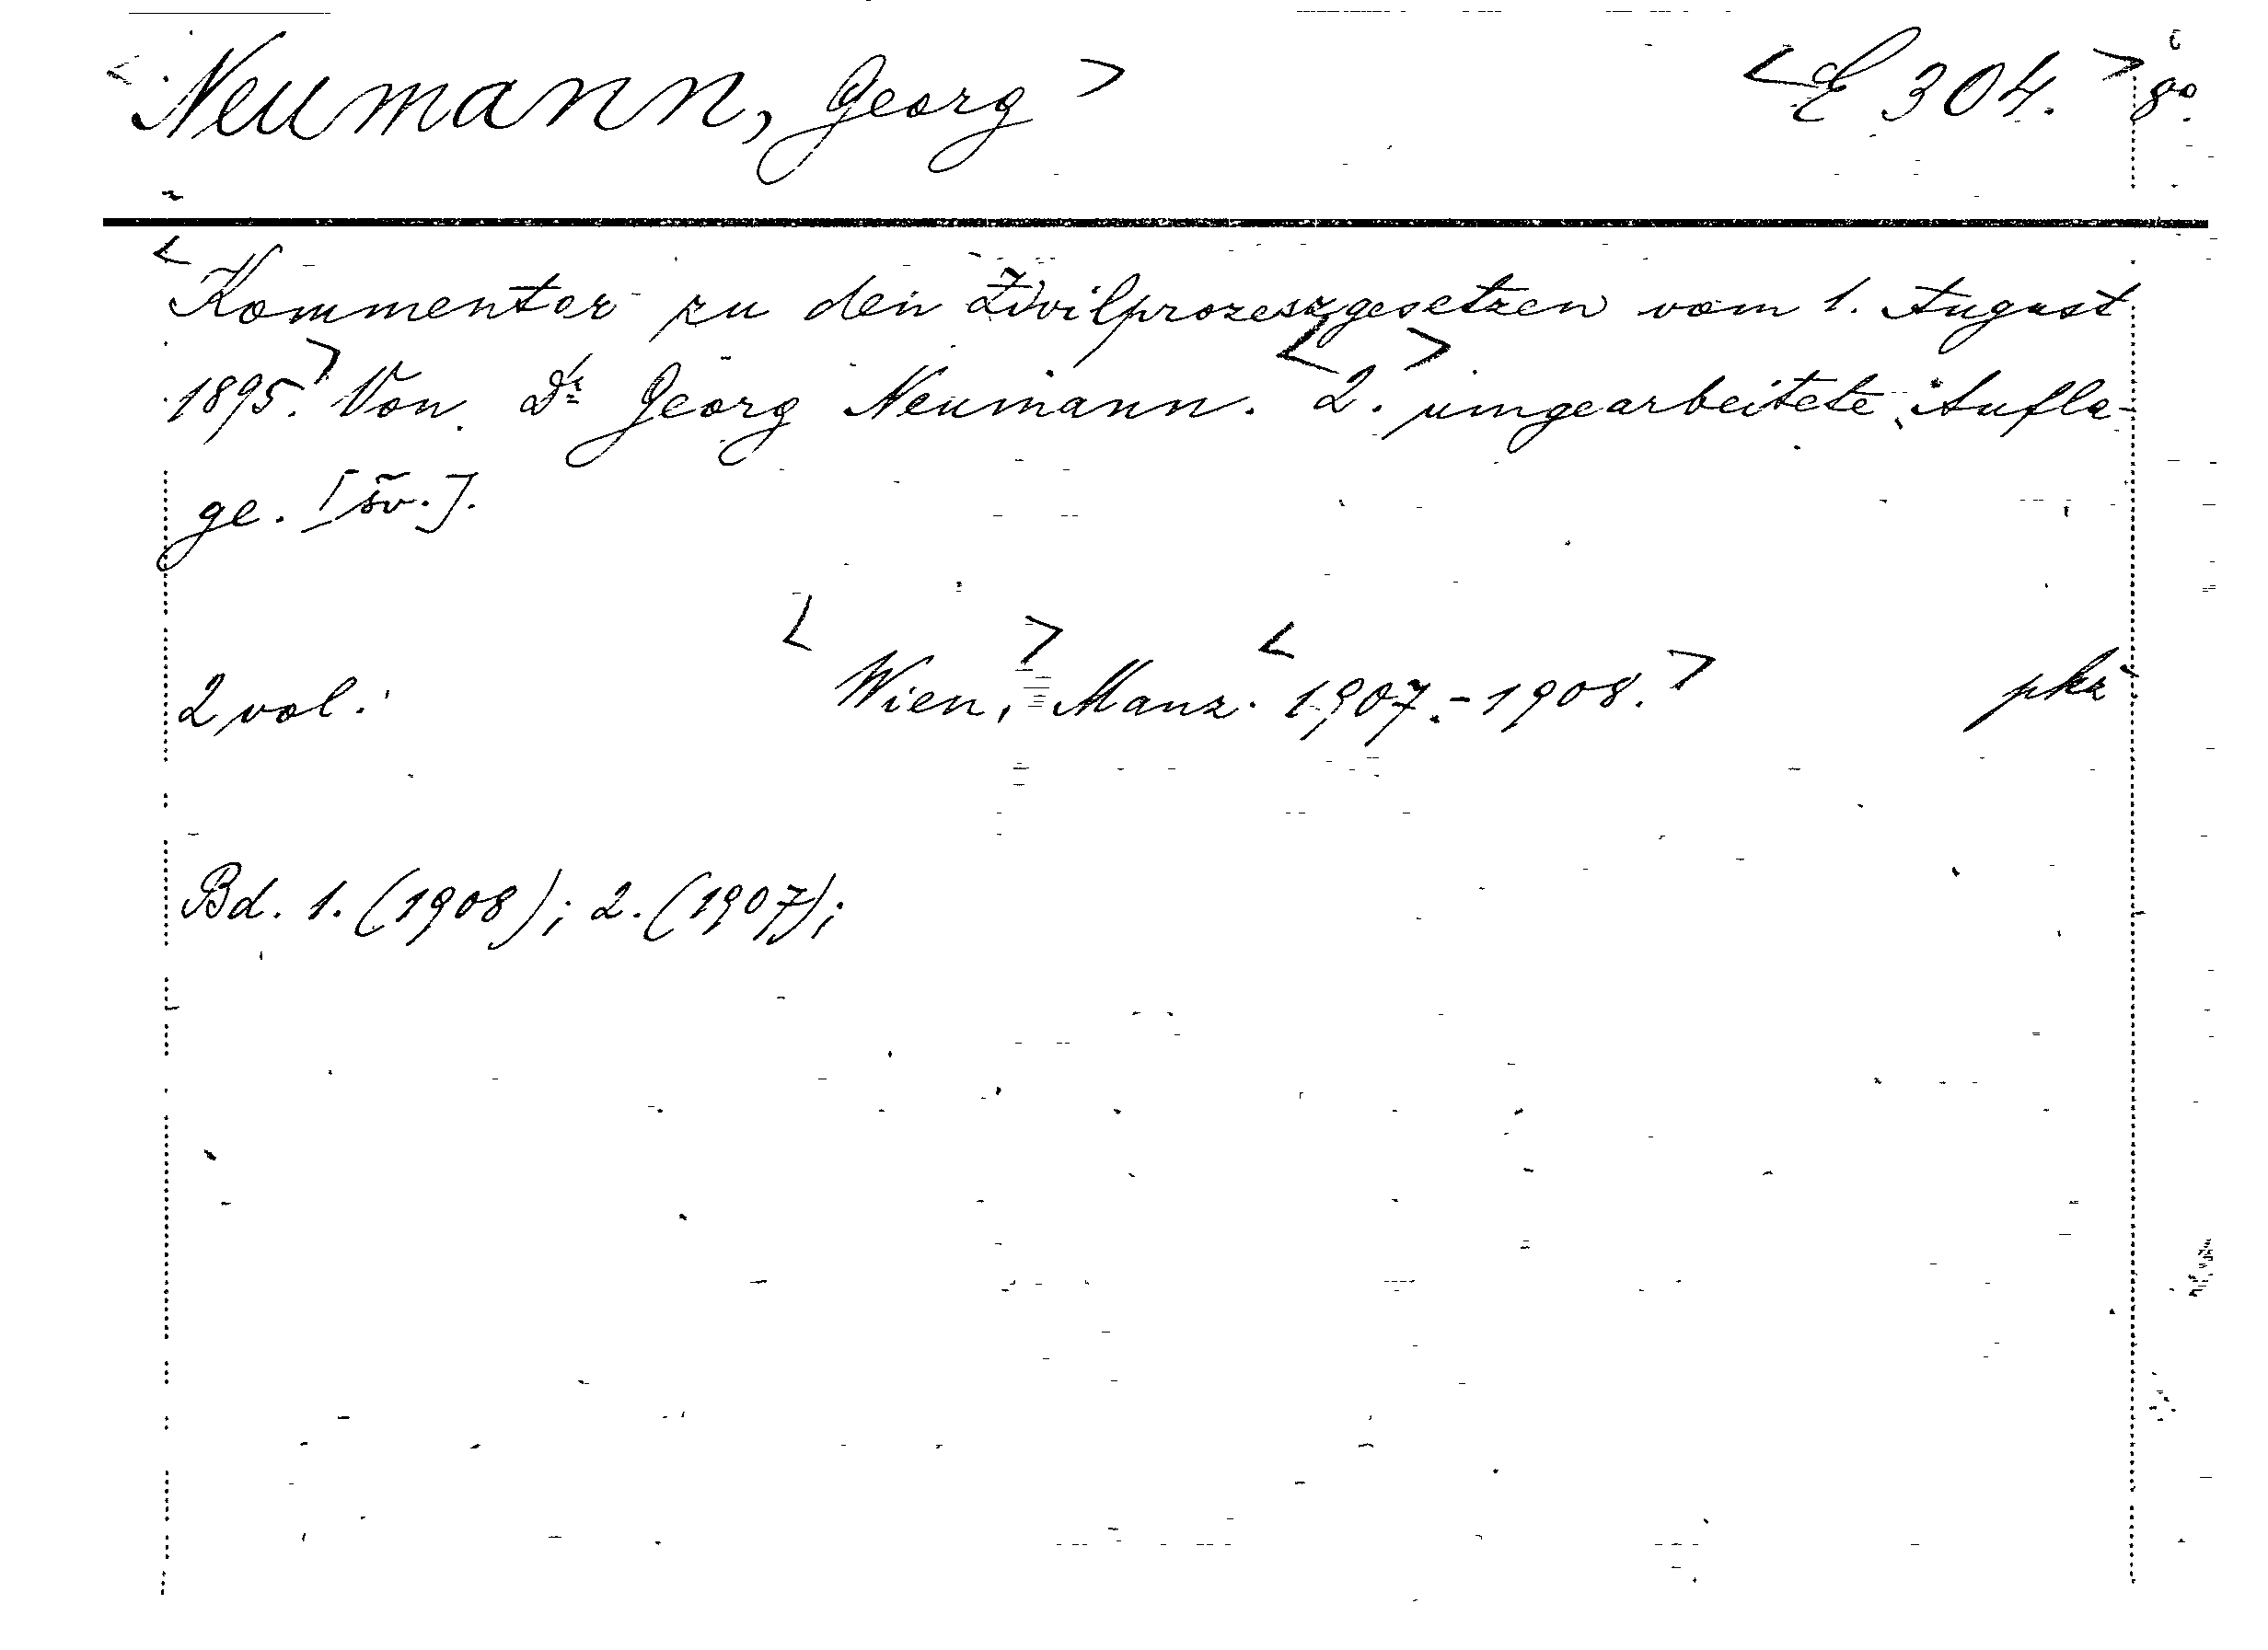 < Neumann, Georg > < E 304. > 8º.
< Kommentar zu den Zivilprozeszgesetzen vom 1. August
1895. > Von Dr Georg Neumann. < 2. > umgearbeitete Aufla-
ge. [šv.].
2 vol. < Wien, > Manz. < 1907.-1908. > pkz
Bd. 1. (1908); 2. (1907);